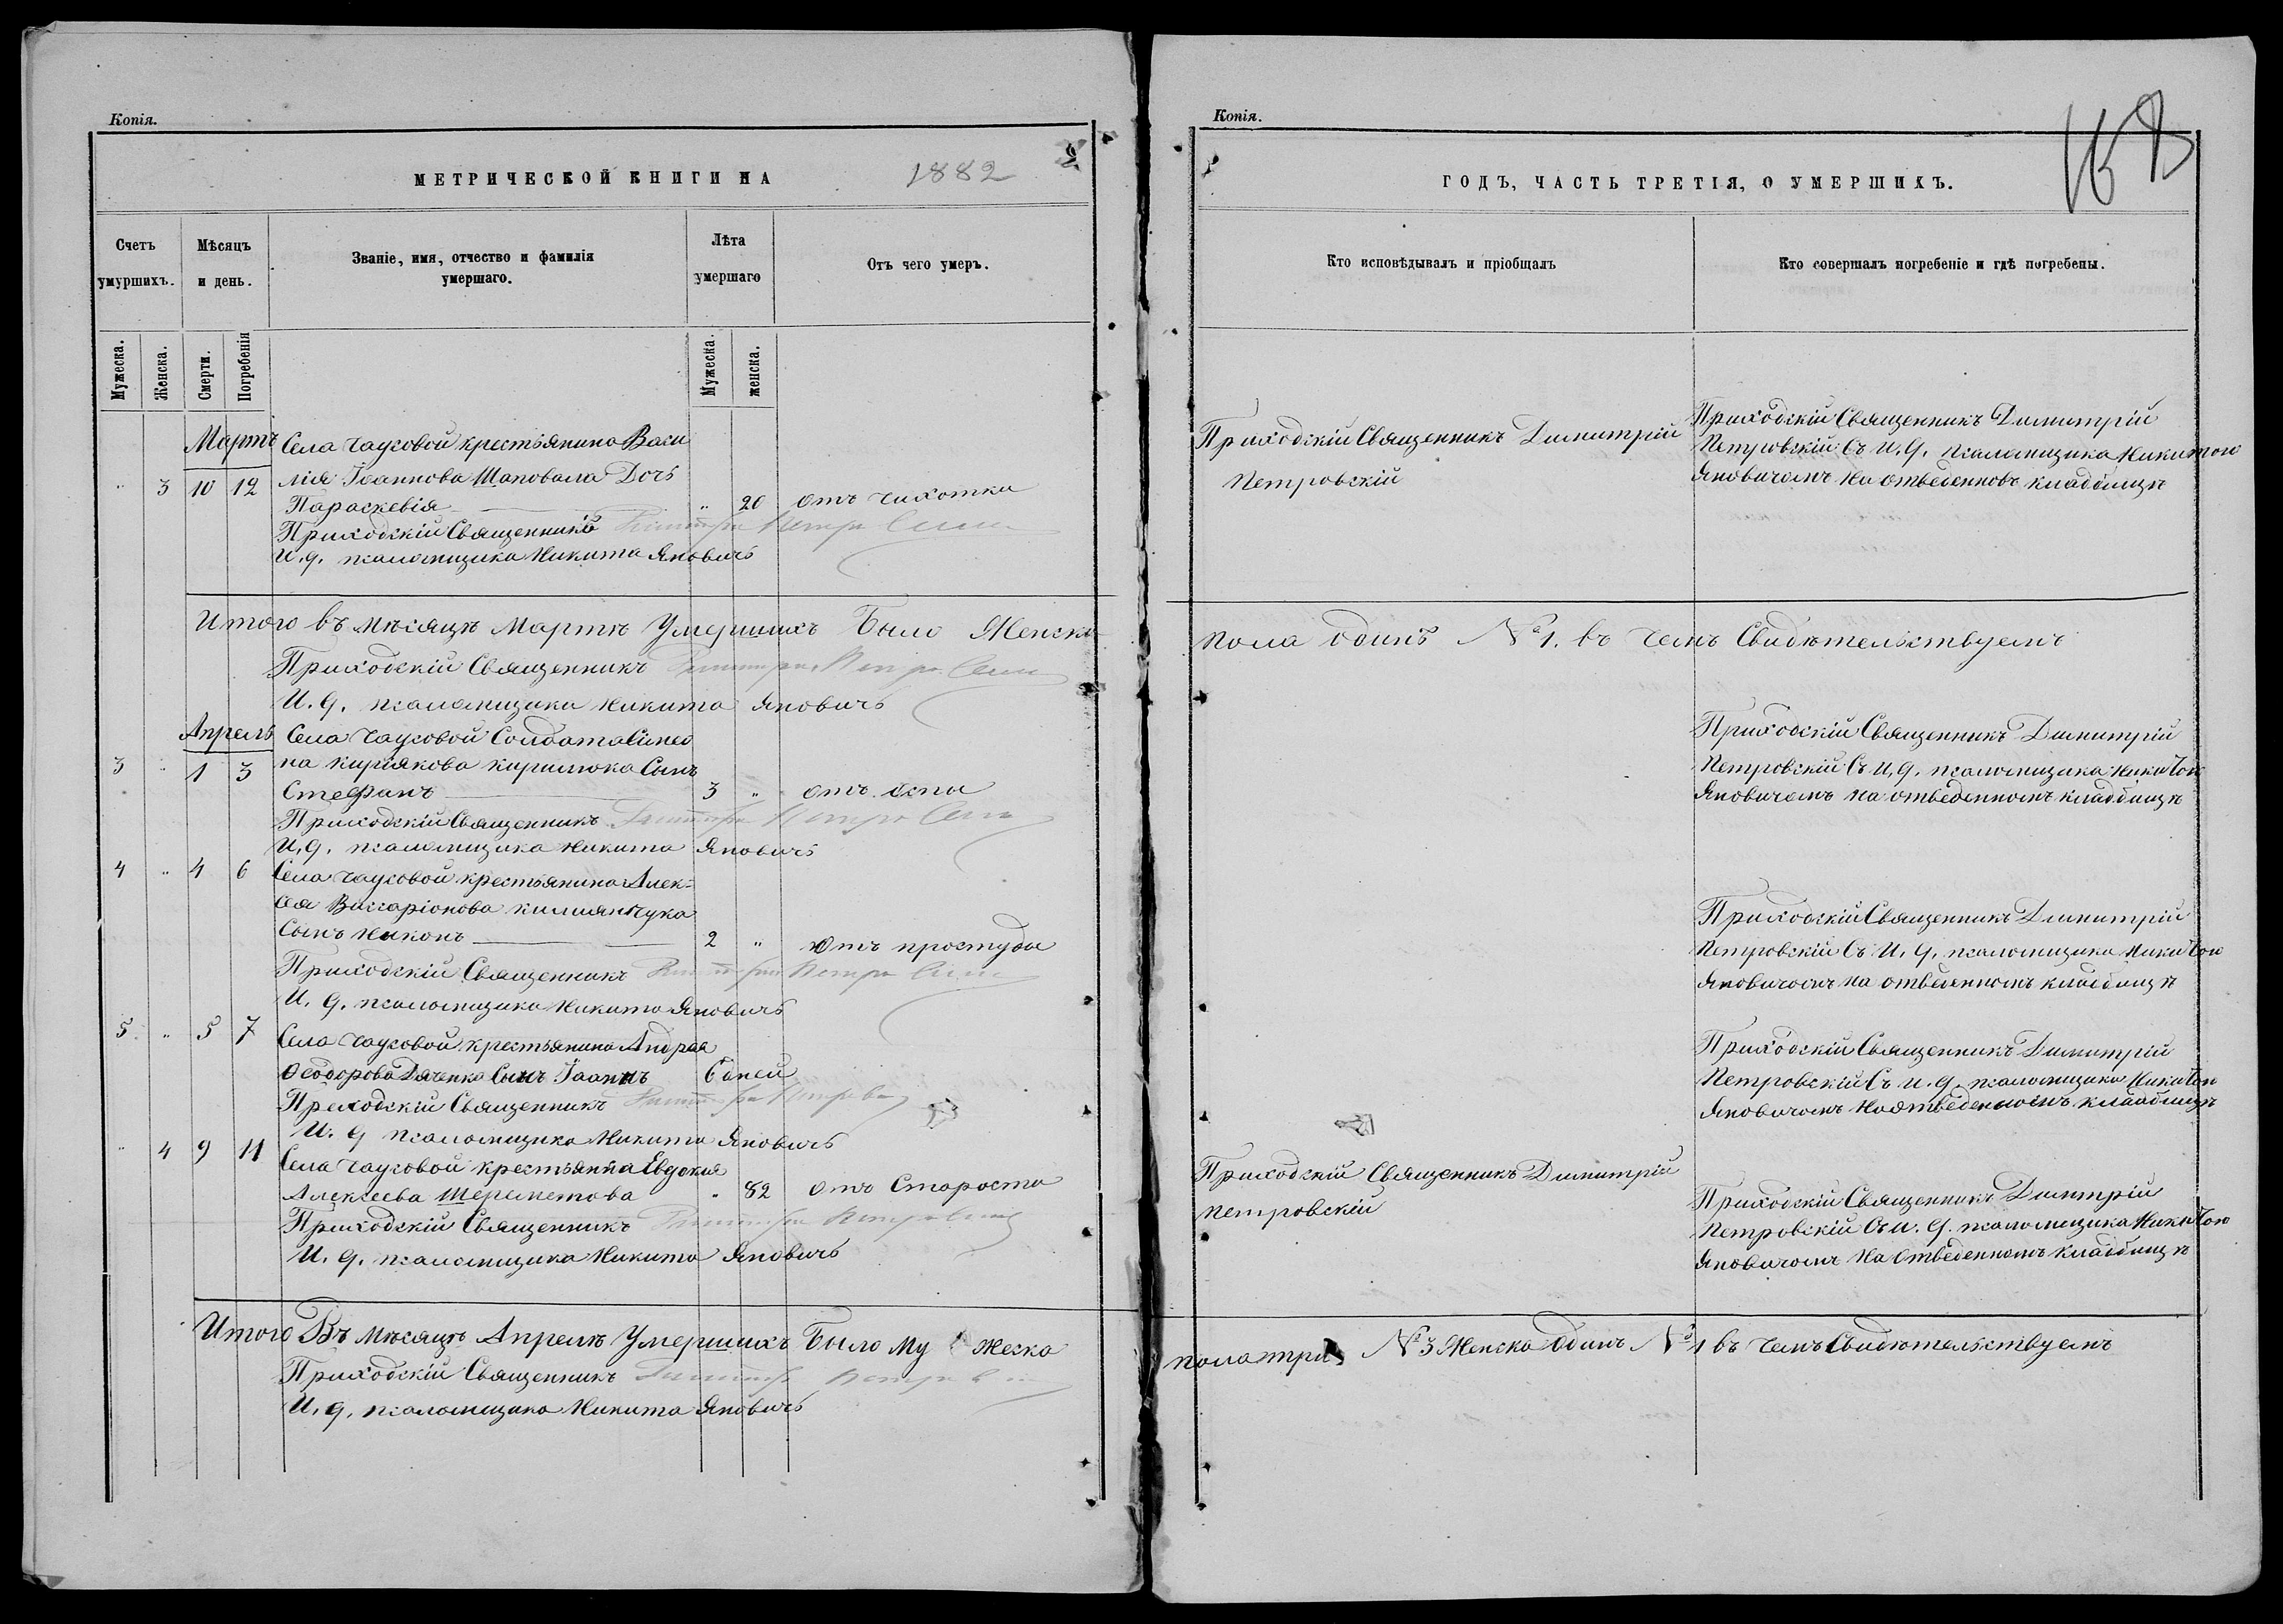 Копія.
МЕТРИЧЕСКОЙ КНИГИ НА 1882
Счетъ умуршихъ.
Мѣсяцъ и день.
Званіе, имя, отчество и фамилія умершаго.
Лѣта умершаго
Отъ чего умеръ.
Мужеска.
Женска.
Смерти.
Погребенія
Мужеска.
женска.
Мартъ Села Чаусовой крестьянина Васи
лія Іоаннова Шаповала Дочь
" 3 10 12
Параскевія " 20 отъ чихотки
Приходскій Священникъ
И.д. псаломщика Никита Яновичъ
Итого въ мѣсяцѣ Мартѣ Умершихъ Было Женска
Приходскій Священникъ
И.д. псаломщика Никита Яновичъ
Апрель Села Чаусовой Солдата Симео
на Киріякова Кирилюка Сынъ
3 " 1 3
Стефанъ 3 " отъ оспы
Приходскій Священникъ
И.д. псаломщика Никита Яновичъ
4 " 4 6 Села Чаусовой крестьянина Алек-
сея Виссаріонова
Сынъ Никонъ 2 " Отъ простуды
Приходскій Священникъ
И.д. псаломщика Никита Яновичъ
5 " 5 7 Села Чаусовой крестьянина Андрея
Ѳеодорова Дяченка Сынъ Іоаннъ 6 дней
Приходскій Священникъ
И.д. псаломщика Никита Яновичъ
" 4 9 11 Села Чаусовой крестьянка Евдокия
Алексеева Шереметова " 82 Отъ Старости
Приходскій Священникъ
И.д. псаломщика Никита Яновичъ
Итого Въ мѣсяцѣ Апрелѣ Умершихъ Было Му жеска
Приходскій Священникъ
И.д. псаломщика Никита Яновичъ
Копія.
ГОДЪ, ЧАСТЬ ТРЕТІЯ, О УМЕРШИХЪ.
Кто исповѣдывалъ и пріобщалъ
Кто совершалъ погребеніе и гдѣ погребены.
Приходскій Священникъ Димитрій
Петровскій
Приходскій Священникъ Димитрій
Петровскій Съ И.д. псаломщика Никитою
Яновичемъ на отведенномъ кладбищѣ
пола одинъ № 1. въ чемъ Свидѣтельствуемъ
Приходскій Священникъ Димитрій
Петровскій Съ И.д. псаломщика Никитою
Яновичемъ на отведенномъ кладбищѣ
Приходскій Священникъ Димитрій
Петровскій Съ И.д. псаломщика Никитою
Яновичемъ на отведенномъ кладбищѣ
Приходскій Священникъ Димитрій
Петровскій Съ И.д. псаломщика Никитою
Яновичемъ на отведенномъ кладбищѣ
Приходскій Священникъ Димитрій
Петровскій
Приходскій Священникъ Димитрій
Петровскій Съ И.д. псаломщика Никитою
Яновичемъ на отведенномъ кладбищѣ
пола три № 3 Женска Одинъ № 1 въ чемъ Свидѣтельствуемъ